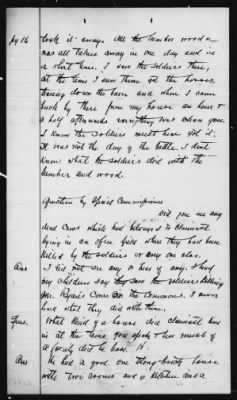 pg 16
took it away. All the lumber wood &c
was all taken away in one day and in
a short time. I saw the soldiers there,
at the time I saw them at the house,
tearing down the barn and when I came
back by there from my house an hour &
a half afterwards every thing was clean gone.
I know the soldiers must have got it.
It was not the day of the battle. I dont
know what the soldiers did with the
lumber and wood.
Question by Special Commissioner
Did you see any
dead Cows which had belonged to Claimant
lying in an open field where they had been
killed by the soldiers or any one else.
Ans I did not see any or hear of any. I heard
my children say they saw the soldiers killing
Mr. Cows on the Commons. I never
heard what they did with them.
Ques. What kind of a house did claimant live
in at the time you speak & how much of
a family did he have?
Ans He had a good one story house
with two rooms and a kitchen and a